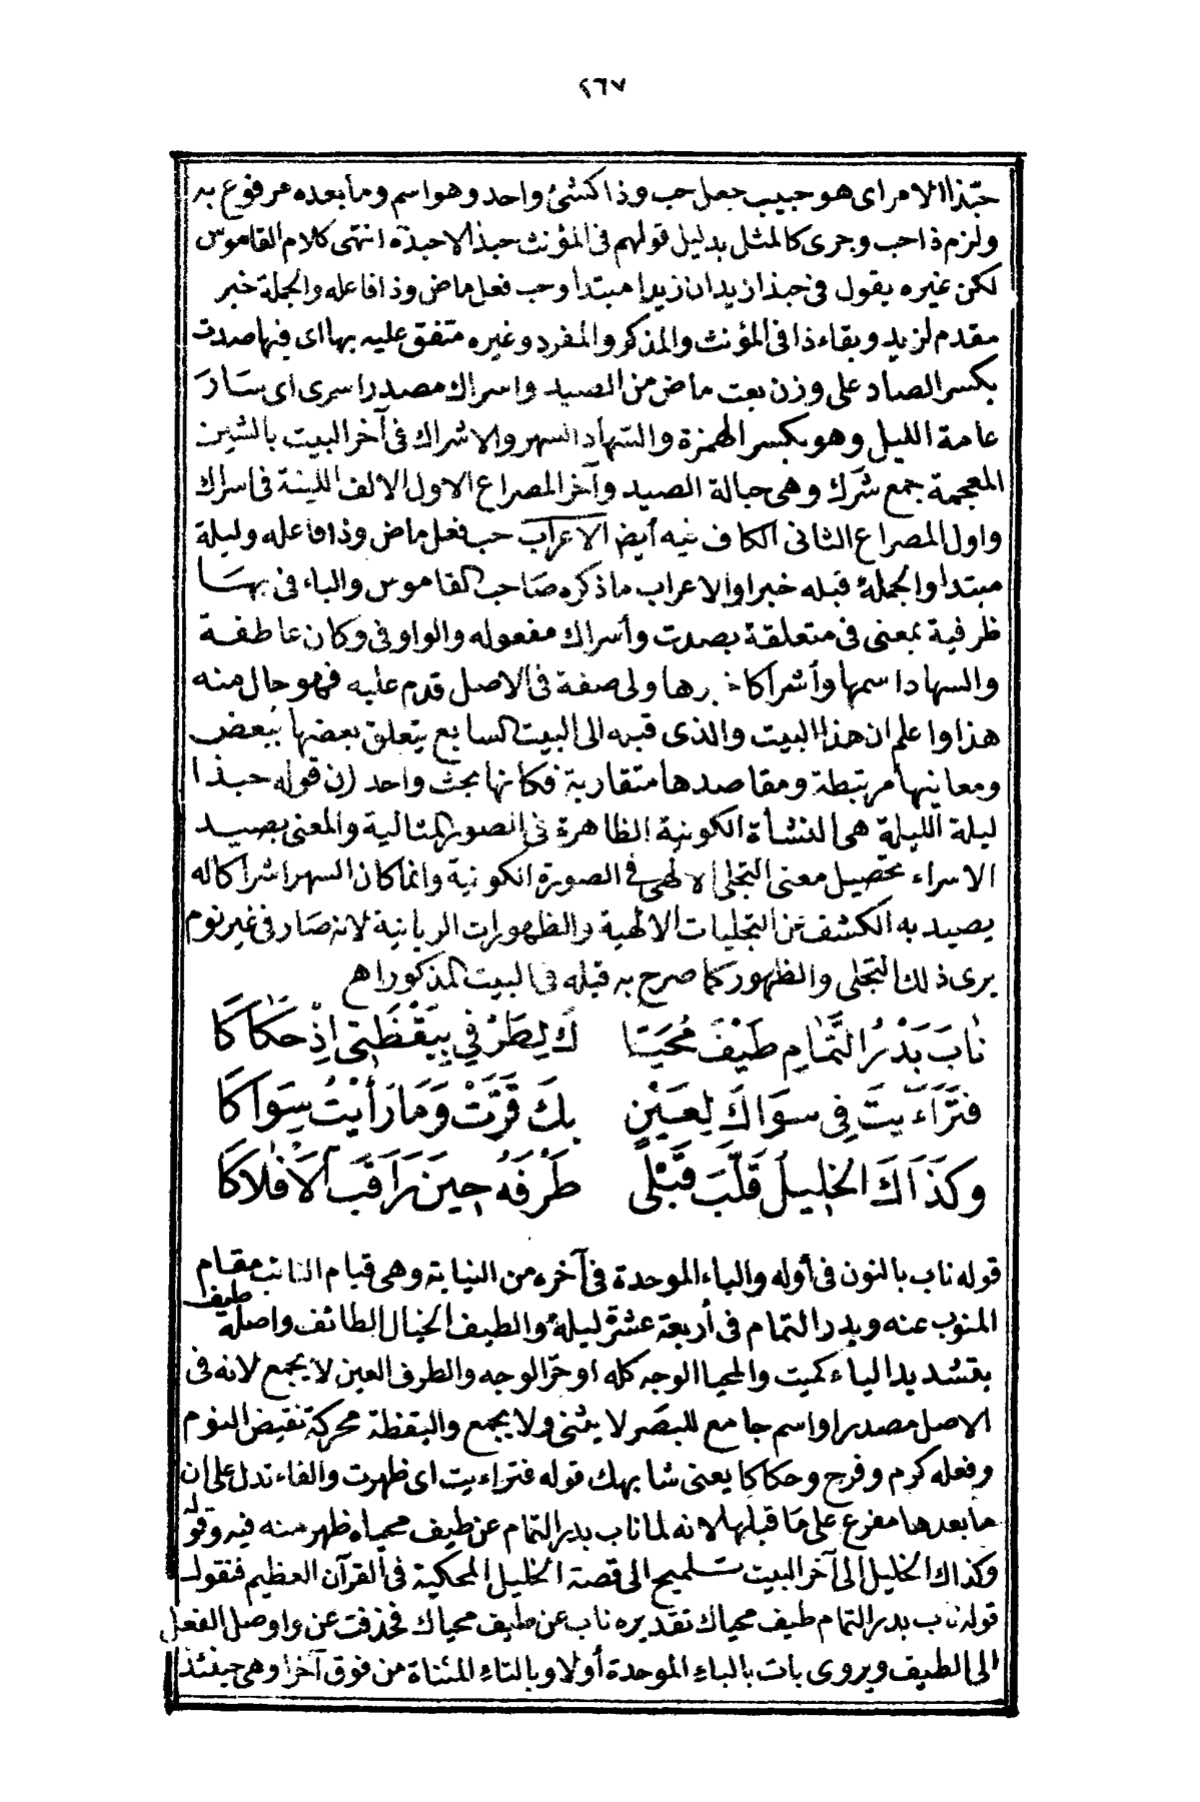 ٢٦٧
حبّذا الامر اى هو حبيب جعل حب وذا كشئ واحد وهو اسم وما بعده مرفوع به
ولزم ذا حب وجرى كالمثل بدليل قولهم فى المؤنث حبذا لا حبذه انتهى كلام القاموس
لكن غيره يقول فى حبذا زيد ان زيدا مبتدا وحب فعل ماض وذا فاعله والجملة خبر
مقدم لزيد وبقاء ذا فى المؤنث والمذكر والمفرد وغيره متفق عليه بها اى فيها صدت
بكسر الصاد على وزن بعت ماض من الصيد واسراك مصدر اسرى اى سَارَ
عامة الليل وهو بكسر الهمزة والسهاد السهر والاشراك فى آخر البيت بالشين
المعجمة جمع شَرَك وهى حبالة الصيد وآخر المصراع الاول الالف اللينة فى اسراك
واول المصراع الثانى الكاف فيه أيضا الاعراب حب فعل ماض وذا فاعله وليلة
مبتدا والجملة قبله خبر اوالاعراب ما ذكره صَاحب القاموس والباء فى بهَا
ظرفية بمعنى فى متعلقة بصدت وأسراك مفعوله والواو فى وكان عاطفة
والسهاد اسمها وأشراكا خبرها ولى صفة فى الاصل قدم عليه فهو حال منه
هذا واعلم ان هذا البيت والذى قبله الى البيت السابع يتعلق بعضها ببعض
ومعانيها مرتبطة ومقاصدها متقاربة فكانها بحث واحد اه ن قوله حبذا
ليلة الليلة هى النشأة الكونية الظاهرة فى الصور المثالية والمعنى بصيد
الاسراء تحصيل معنى التجلى الالهى فى الصورة الكونية وانما كان السهر اشراكا له
يصيد به الكشف عن التجليات الالهية والظهورات الربانية لانه صَار فى غير نوم
يرى ذلك التجلى والظهور كما صرح به قبله فى البيت المذكور اهـ
نَابَ بَدْرُ التَّمَامِ طَيْفَ مُحَيَّا كَ لِطَرْفِي بِيَقْظَتِى إِذْ حَكَاكَا
فَتَرَاءَيتَ فِى سِوَاكَ لِعَيْنٍ بِكَ قَرَّتْ وَمَا رَأَيْتُ سِوَاكَا
وَكَذَاكَ الخَلِيلُ قَلَّبَ قَبْلى طَرْفَهُ حِينَ رَاقَبَ الأَفْلاكَا
قوله ناب بالنون فى أوله والباء الموحدة فى آخره من النيابة وهى قيام النائب مقام
المنوب عنه وبدر التمام فى أربعة عشرة ليلة والطيف الخيال الطائف واصله طيف
بتشديد الياء كميت والمحيا الوجه كله او حرّ الوجه والطرف العين لا يجمع لانه فى
الاصل مصدر او اسم جامع للبصَر لا يثنى ولا يجمع واليقظة محركة نقيض النوم
وفعله كرم وفرح وحكاكا يعنى شابهك قوله فتراءيت اى ظهرت والفاء تدل على ان
ما بعدها مفرع على مَا قبلها لانه لما ناب بدر التمام عن طيف محياه ظهر منه فيه وقوله
وكذاك الخليل الى آخر البيت تلميح الى قصة الخليل المحكية فى القرآن العظيم فنقول
قوله ناب بدر التمام طيف محياك تقديره ناب عن طيف محياك فحذفت عن واوصل الفعل
الى الطيف ويروى بات بالباء الموحدة أولا وبالتاء المثناة من فوق آخرا وهى حينئذ